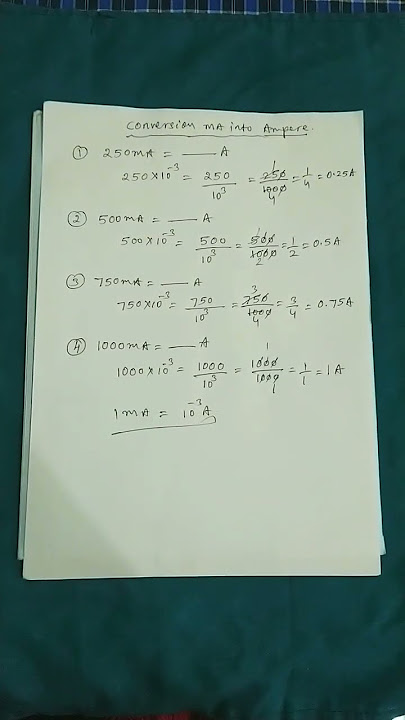 Conversion mA into Ampere.
① 250mA = ___ A
250×10⁻³ = 250/10³ = 250/1000 = 1/4 = 0.25A
② 500mA = ___ A
500×10⁻³ = 500/10³ = 500/1000 = 1/2 = 0.5A
③ 750mA = ___ A
750×10⁻³ = 750/10³ = 750/1000 = 3/4 = 0.75A
④ 1000mA = ___ A
1000×10⁻³ = 1000/10³ = 1000/1000 = 1/1 = 1A
1mA = 10⁻³A